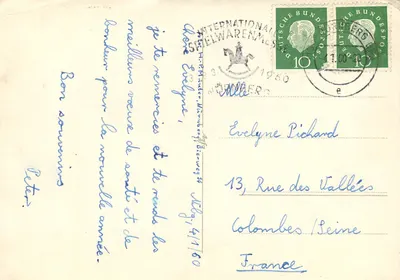 Nbg, 4/1/60
Chère Evelyne,
je te remercie et te rends les
meilleurs vœux de santé et de
bonheur pour la nouvelle année.
Bon souvenirs
Peter.
INTERNATIONALE
SPIELWARENMESSE
1960
NÜRNBERG
DEUTSCHE BUNDESPOST
10
DEUTSCHE BUNDESPOST
10
e
Mlle
Evelyne Pichard
13, Rue des Vallées
Colombes/Seine
France